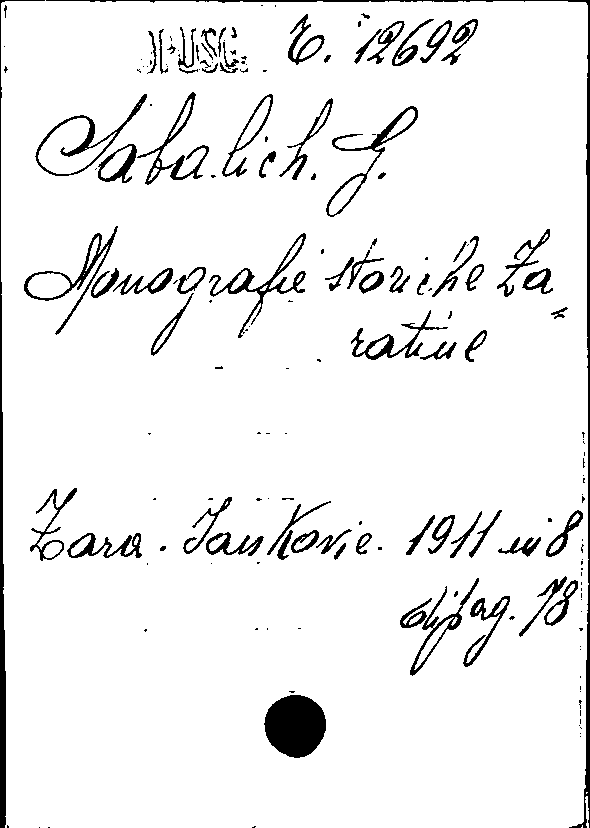 OPUSC. E. 12692
Sabalich. G.
Monografie storiche Za=
ratine
Zara. Jankovic. 1911 in 8
di pag. 78